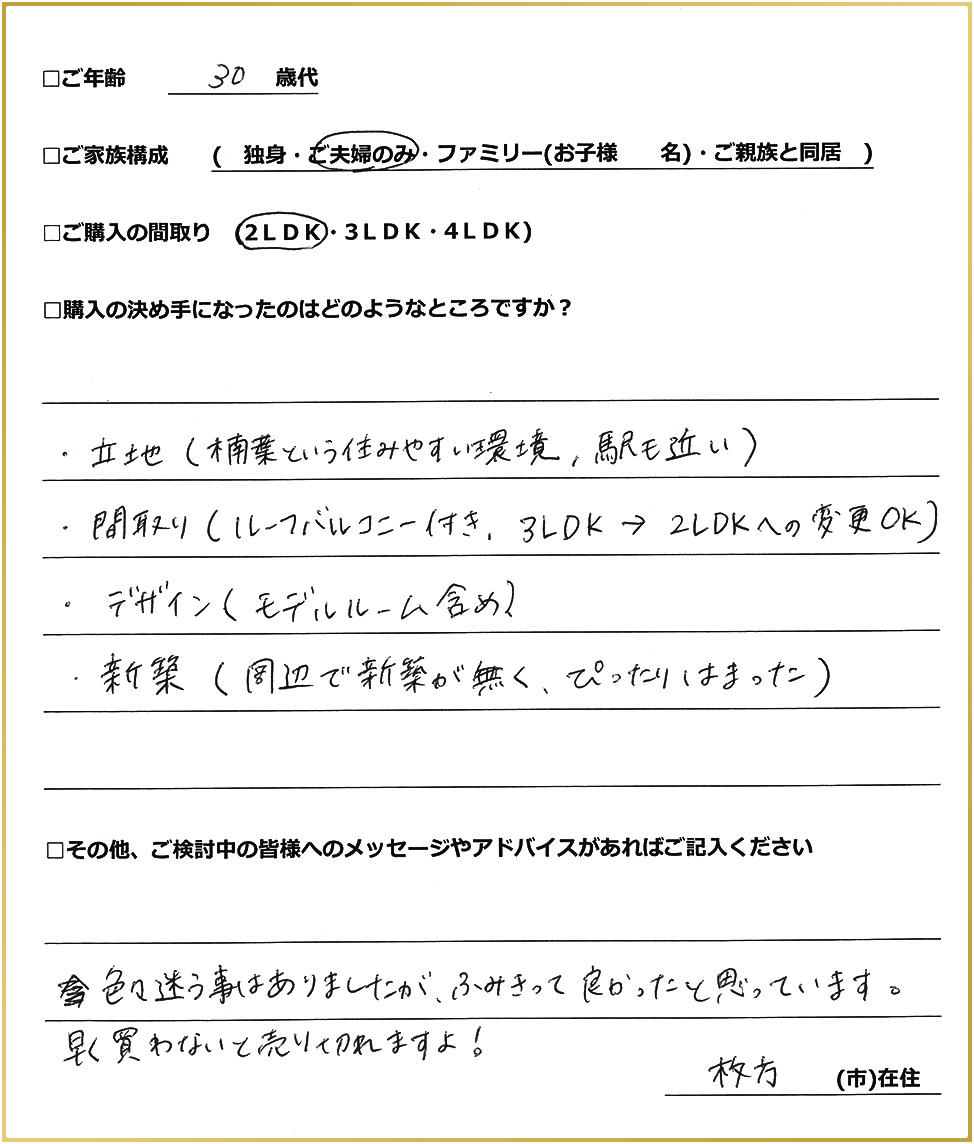 □ご年齢 30 歳代
□ご家族構成 ( 独身・ご夫婦のみ・ファミリー(お子様 名)・ご親族と同居 )
□ご購入の間取り (2LDK・3LDK・4LDK)
□購入の決め手になったのはどのようなところですか？
・立地(楠葉という住みやすい環境, 駅も近い)
・間取り(ルーフバルコニー付き, 3LDK → 2LDKへの変更OK)
・デザイン(モデルルーム含め)
・新築(周辺で新築が無く、ぴったりはまった)
□その他、ご検討中の皆様へのメッセージやアドバイスがあればご記入ください
色々迷う事はありましたが、ふみきって良かったと思っています。
早く買わないと売り切れますよ！
枚方 (市)在住